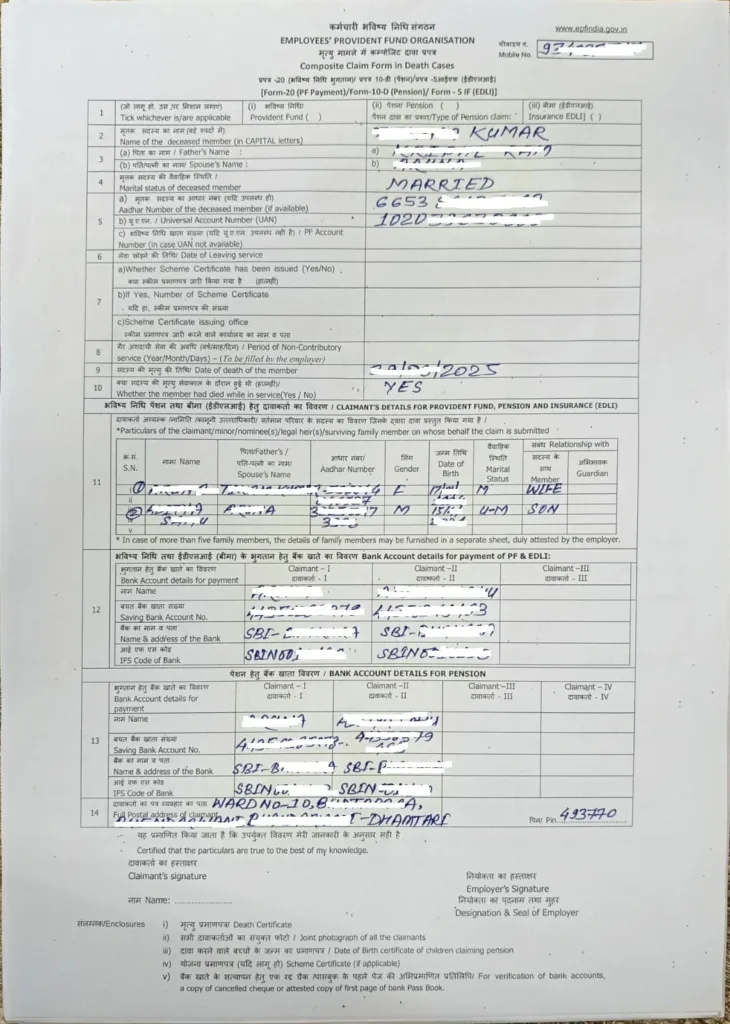 कर्मचारी भविष्य निधि संगठन
www.epfindia.gov.in
EMPLOYEES' PROVIDENT FUND ORGANISATION
मृत्यु मामले में कम्पोजिट दावा प्रपत्र
मोबाइल न.
Mobile No.
Composite Claim Form in Death Cases
प्रपत्र -20 (भविष्य निधि भुगतान)/ प्रपत्र 10-डी (पेंशन)/प्रपत्र -5आईएफ (ईडीएलआई)
[Form-20 (PF Payment)/Form-10-D (Pension)/ Form - 5 IF (EDLI)]
1 (जो लागू हो, उस पर निशान लगाएं) (i) भविष्य निधि/ (ii) पेंशन/ Pension ( ) (iii) बीमा (ईडीएलआई)
Tick whichever is applicable) Provident Fund ( ) पेंशन दावा का प्रकार/Type of Pension claim: Insurance EDLI] ( )
2 मृतक सदस्य का नाम (बड़े शब्दों में)
Name of the deceased member (in CAPITAL letters) KUMAR
3 (a) पिता का नाम / Father's Name : a)
(b) पति/पत्नी का नाम/ Spouse's Name : b)
4 मृतक सदस्य की वैवाहिक स्थिति /
Marital status of deceased member MARRIED
5 a) मृतक सदस्य का आधार नंबर (यदि उपलब्ध हो)
Aadhar Number of the deceased member (if available) 6653
b) यू.ए.एन. / Universal Account Number (UAN) 1020
c) भविष्य निधि खाता संख्या (यदि यू.ए.एन. उपलब्ध नहीं है) / PF Account
Number (in case UAN not available)
6 सेवा छोड़ने की तिथि/ Date of Leaving service
7 a)Whether Scheme Certificate has been issued (Yes/No)
क्या स्कीम प्रमाणपत्र जारी किया गया है (हां/नहीं)
b)If Yes, Number of Scheme Certificate
यदि हां, स्कीम प्रमाणपत्र की संख्या
c)Scheme Certificate issuing office
स्कीम प्रमाणपत्र जारी करने वाले कार्यालय का नाम व पता
8 गैर अंशदायी सेवा की अवधि (वर्ष/माह/दिन) / Period of Non-Contributory
service (Year/Month/Days) – (To be filled by the employer)
9 सदस्य की मृत्यु की तिथि/ Date of death of the member /2025
10 क्या सदस्य की मृत्यु सेवाकाल के दौरान हुई थी (हां/नहीं)/
Whether the member had died while in service(Yes / No) YES
भविष्य निधि पेंशन तथा बीमा (ईडीएलआई) हेतु दावाकर्ता का विवरण / CLAIMANT'S DETAILS FOR PROVIDENT FUND, PENSION AND INSURANCE (EDLI)
*Particulars of the claimant/minor/nominee(s)/legal heir(s)/surviving family member on whose behalf the claim is submitted
11 क्र.सं. S.N. नाम/ Name पिता/Father's / पति-पत्नी का नाम/ Spouse's Name आधार नंबर/ Aadhar Number लिंग Gender जन्म तिथि Date of Birth वैवाहिक स्थिति Marital Status संबंध Relationship with
सदस्य के साथ Member अभिभावक Guardian
M WIFE
ii
M U-M SON
v
* In case of more than five family members, the details of family members may be furnished in a separate sheet, duly attested by the employer.
भविष्य निधि तथा ईडीएलआई (बीमा) के भुगतान हेतु बैंक खाते का विवरण Bank Account details for payment of PF & EDLI:
12 भुगतान हेतु बैंक खाते का विवरण Claimant – I Claimant –II Claimant –III
Bank Account details for payment दावाकर्ता - I दावाकर्ता - II दावाकर्ता - III
नाम Name
बचत बैंक खाता संख्या
Saving Bank Account No.
बैंक का नाम व पता
Name & address of the Bank SBI- SBI-
आई एफ एस कोड
IFS Code of Bank
पेंशन हेतु बैंक खाता विवरण / BANK ACCOUNT DETAILS FOR PENSION
13 भुगतान हेतु बैंक खाते का विवरण Claimant – I Claimant –II Claimant –III Claimant – IV
Bank Account details for दावाकर्ता - I दावाकर्ता - II दावाकर्ता - III दावाकर्ता - IV
payment
नाम Name
बचत बैंक खाता संख्या
Saving Bank Account No.
बैंक का नाम व पता
Name & address of the Bank SBI-B SBI-
आई एफ एस कोड
IFS Code of Bank SBIN SBIN
14 दावाकर्ता का पत्र व्यवहार का पता WARD NO-10,
Full Postal address of claimant DHAMTARI पिन/ Pin. 493770
यह प्रमाणित किया जाता है कि उपर्युक्त विवरण मेरी जानकारी के अनुसार सही है
Certified that the particulars are true to the best of my knowledge.
दावाकर्ता का हस्ताक्षर
Claimant's signature
नियोक्ता का हस्ताक्षर
Employer's Signature
नाम Name: ........................
नियोक्ता का पदनाम तथा मुहर
Designation & Seal of Employer
संलग्नक/Enclosures i) मृत्यु प्रमाणपत्र/ Death Certificate
ii) सभी दावाकर्ताओं का संयुक्त फोटो / Joint photograph of all the claimants
iii) दावा करने वाले बच्चों के जन्म का प्रमाणपत्र / Date of Birth certificate of children claiming pension
iv) योजना प्रमाणपत्र (यदि लागू हो) Scheme Certificate (if applicable)
v) बैंक खाते के सत्यापन हेतु एक रद्द चैक /पासबुक के पहले पेज की अभिप्रमाणित प्रतिलिपि/ For verification of bank accounts,
a copy of cancelled cheque or attested copy of first page of bank Pass Book.